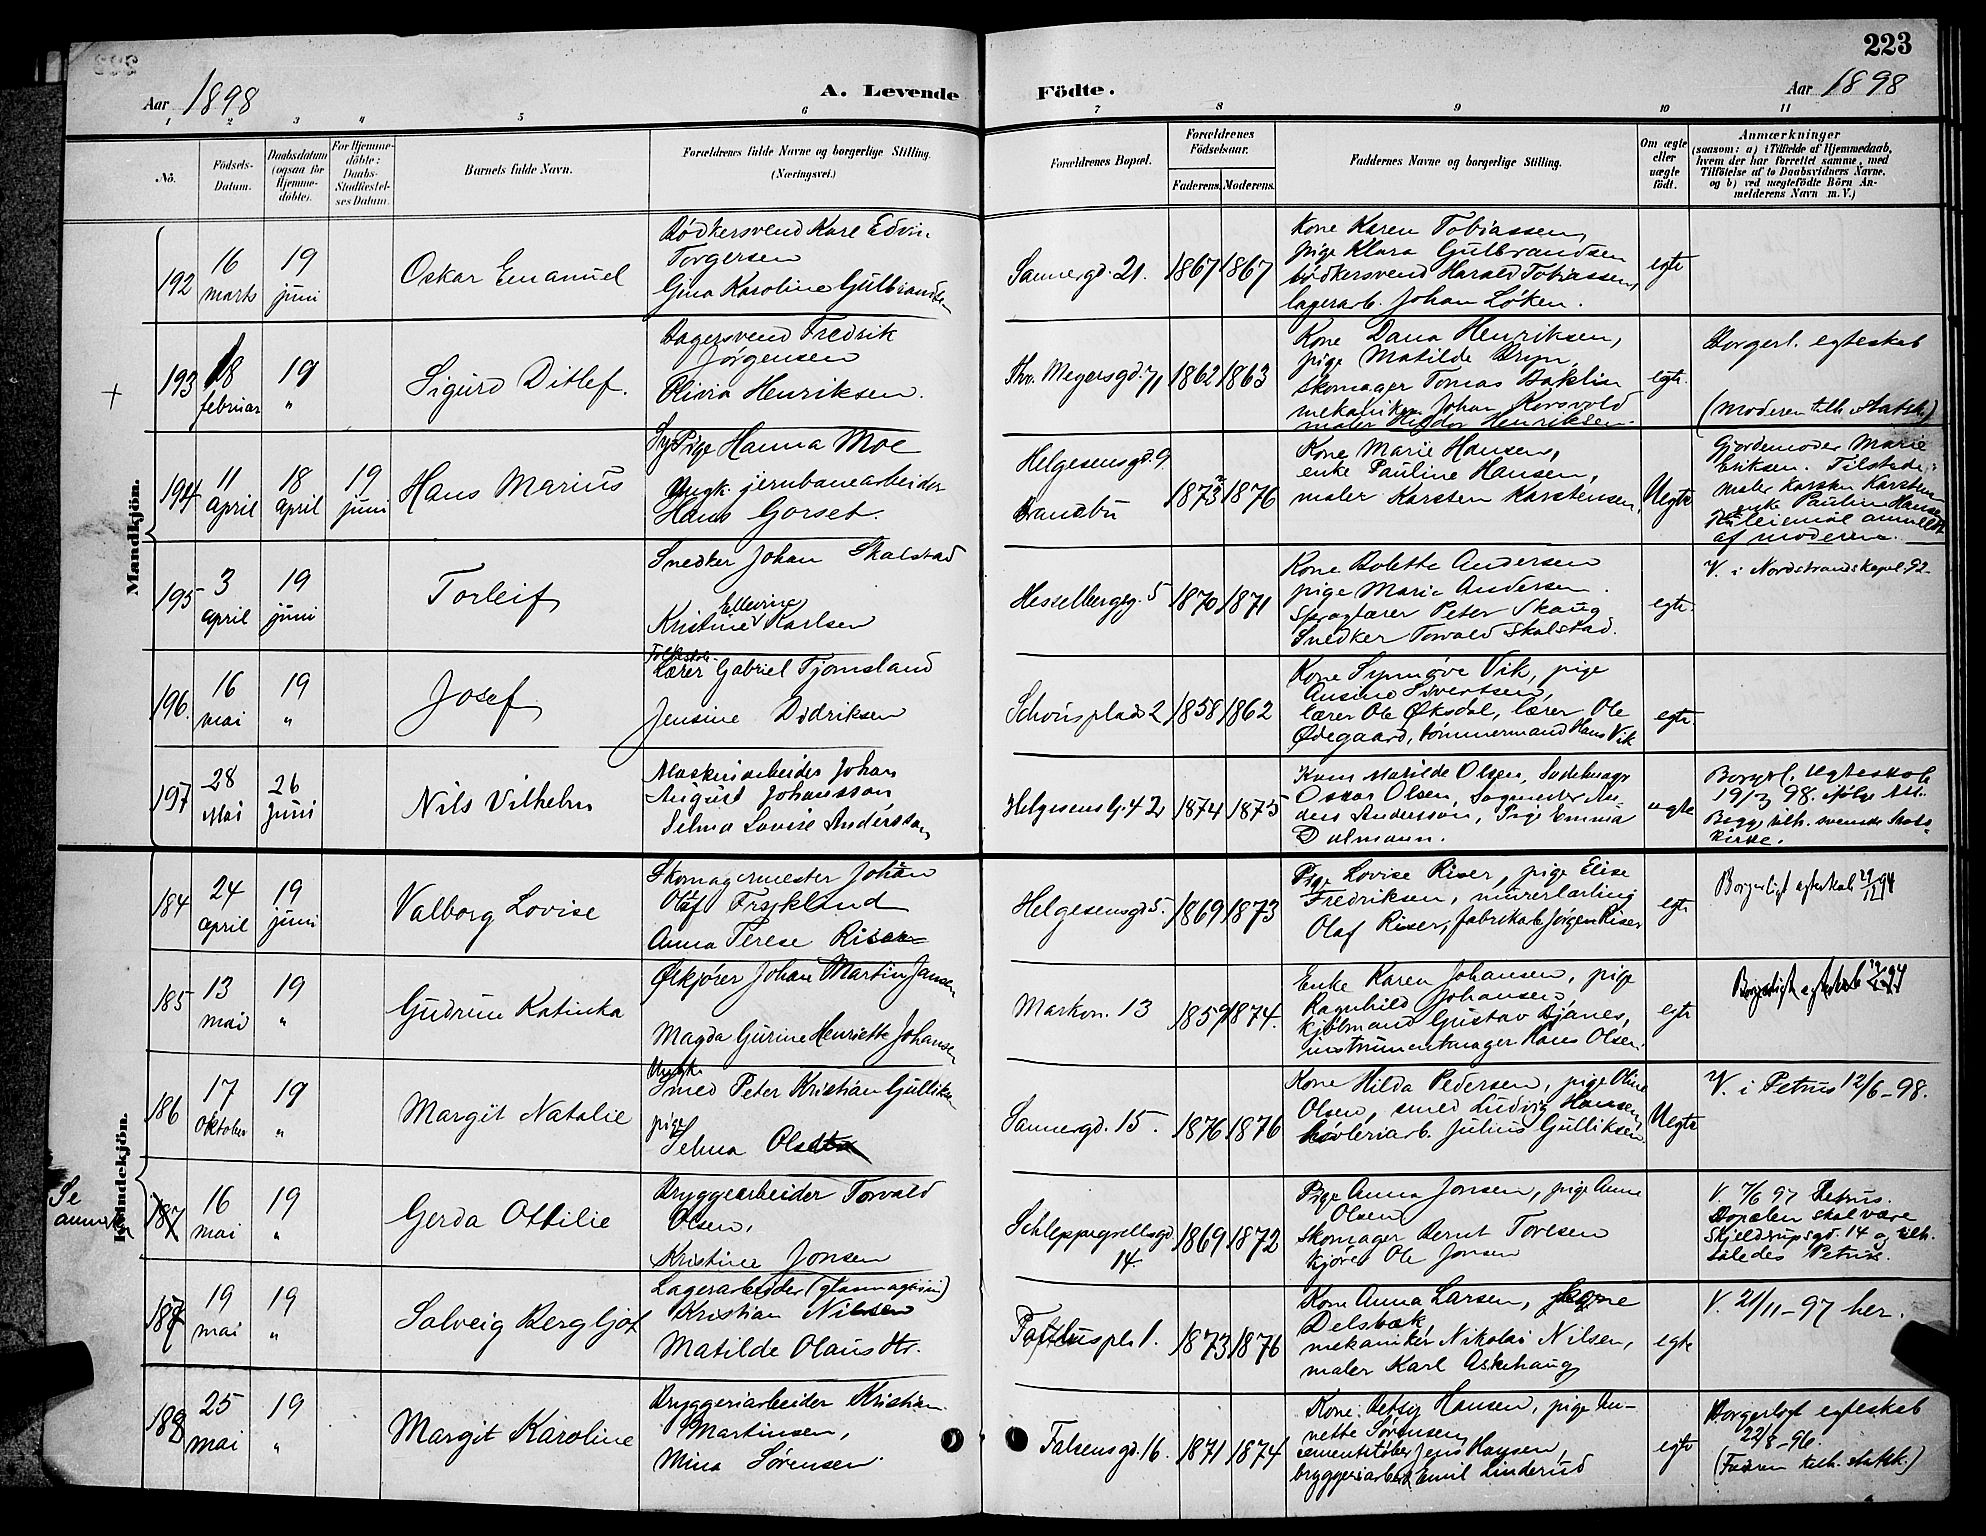 223
Aar 1898
A. Levende
Födte.
Aar 1898
1 2 3 4 5 6 7 8 9 10 11
No.
Födsels-
Datum.
Daabsdatum
(ogsaa for
Hjemme-
döbte).
For Hjemme-
döbte:
Daabs-
Stadfæstel-
ses Datum.
Barnets fulde Navn.
Forældrenes fulde Navne og borgerlige Stilling.
(Næringsvei.)
Forældrenes Bopæl.
Forældrenes
Födselsaar.
Faderens. Moderens.
Faddernes Navne og borgerlige Stilling.
Om ægte
eller
uægte
födt.
Anmærkninger
(saasom: a) i Tilfælde af Hjemmedaab,
hvem der har forrettet samme, med
Tilföielse af to Daabsvidners Navne,
og b) ved uægtefödte Börn An-
melderens Navn m. V.)
Mandkjön.
192
16
marts
19
juni
Oskar Emanuel
Bödkersvend Karl Edvin
Torgersen
Gina Karoline Gulbrandsen
Sannergd. 21.
1867 1867
Kone Karen Tobiassen,
pige Klara Gulbrandsen
bödkersvend Harald Tobiassen,
lagerarb. Johan Löken.
egte
+
193
18
februar
19
"
Sigurd Ditlef.
Bagersvend Fredrik
Jörgensen
Olivia Henriksen.
Thv. Meyersgd. 71
1862 1863
Kone Dana Henriksen,
pige Matilde Bryn,
skomager Tomas Baklin
mekaniker Johan Korsvold
maler Hildor Henriksen.
egte.
Borgerl. egteskab
(Moderen tilh. Statsk.)
194
11
april
18
april
19
juni
Hans Marius
SyPige Hanna Moe
Ungk. jernbanearbeider
Hans Gorset.
Helgesensgd. 9.
Brandbu
1873 1876
Kone Marie Hansen,
enke Pauline Hansen,
maler Karsten Karstensen.
Uegte
Gjordemoder Marie
Eriksen. Tilstede:
maler Karsten Karstensen
enke Pauline Hansen
Leiermål anmeldt
af moderen.
195
3
april
19
juni
Torleif
Snedker Johan Skalstad
Ellevine
Kristine Karlsen
Hesselbergsg. 5
1870 1871
Kone Bolette Andersen
pige Marie Andersen.
Sproglærer Peter Skaug
Snedker Torvald Skalstad.
egte
V. i Nordstrands kapel 92.
196.
16
mai
19
"
Josef
Folkeskole
Lærer Gabriel Tjomsland
Jensine Didriksen
Schousplads 2
1858 1862
Kone Synnöve Vik, pige
Ansine Sivertsen,
lærer Ole Øksdal, lærer Ole
Ødegaard, tömmermand Hans Vik
egte
197
28
Mai
26
Juni
Nils Vilhelm
Maskinarbeider Johan
August Johansson
Selma Lovise Andersson
Helgesens G. 42
1874 1875
Kone Matilde Olsen, Sadelmager
Oskar Olsen, Sagmester An-
ders Andersson, Pige Emma
Dalmann.
egte
Borgerl. Egteskab
19/3 98. ifölge Att.
Begge tilh. svenske Stats-
kirke.
Kvindekjön.
184
24
april
19
juni
Valborg Lovise
Skomagermester Johan
Olaf Frykland
Anna Terese Riser
Helgesensgd 5.
1869 1873
Pige Lovise Riser, pige Elise
Fredriksen, murerlærling
Olaf Riser, fabrikarb. Jörgen Riser
egte
Borgerligt egteskab
185
13
mai
19
"
Gudrun Katinka
Ølkjører Johan Martin Jansen
Magda Gurine Henriette Johansen
Markvn. 13
1859 1874.
Enke Karen Johansen, pige
Ragnhild Johansen,
kjöbmand Gustav Bjanes,
instrumentmager Hans Olsen.
egte
Borgerligt egteskab
186
17
oktober
19
"
Margit Natalie
Ungk.
Smed Peter Kristian Gulliksen
pige
Selma Olsen
Sannergd. 15.
1876 1876
Kone Hilda Pedersen, pige Oline
Olsen, smed Ludvig Hansen,
hövleriarb. Julius Gulliksen
Uegte
V. i Petrus 12/6-98.
Se
anmerkn.
187
16
mai
19
"
Gerda Ottilie
Bryggearbeider Torvald
Olsen,
Kristine Jonsen
Schleppegrellsgd.
14.
1869 1872
Pige Anna Jonsen, pige Anne
Olsen
Skomager Bernt Toresen
kjörer Ole Jonsen
V. 7/6 97 Petrus.
Bopælen skal være
Skjeldrupsgd. 14 og tilh.
således Petrus.
187
19
mai
19
"
Solveig Bergljot
Lagerarbeider (glasmagasin)
Kristian Nilsen
Matilde Olausdtr.
Paulus pl. 1.
1873 1876
Kone Anna Larsen, Signe
Delsbæk,
mekaniker Nikolai Nilsen,
maler Karl Askehaug
egte
V. 21/11-97 her.
188
25
mai
19
"
Margit Karoline
Bryggeriarbeider Kristian
Martinsen,
Mina Sörensen.
Falsensgd. 16.
1871 1874
Kone Betsy Hansen, pige An-
nette Sörensen,
cementstöber Jens Hansen,
bryggeriarbeid. Emil Linderud
egte
Borgerligt egteskab
22/8-96.
(Faderen tilh. statsk.)